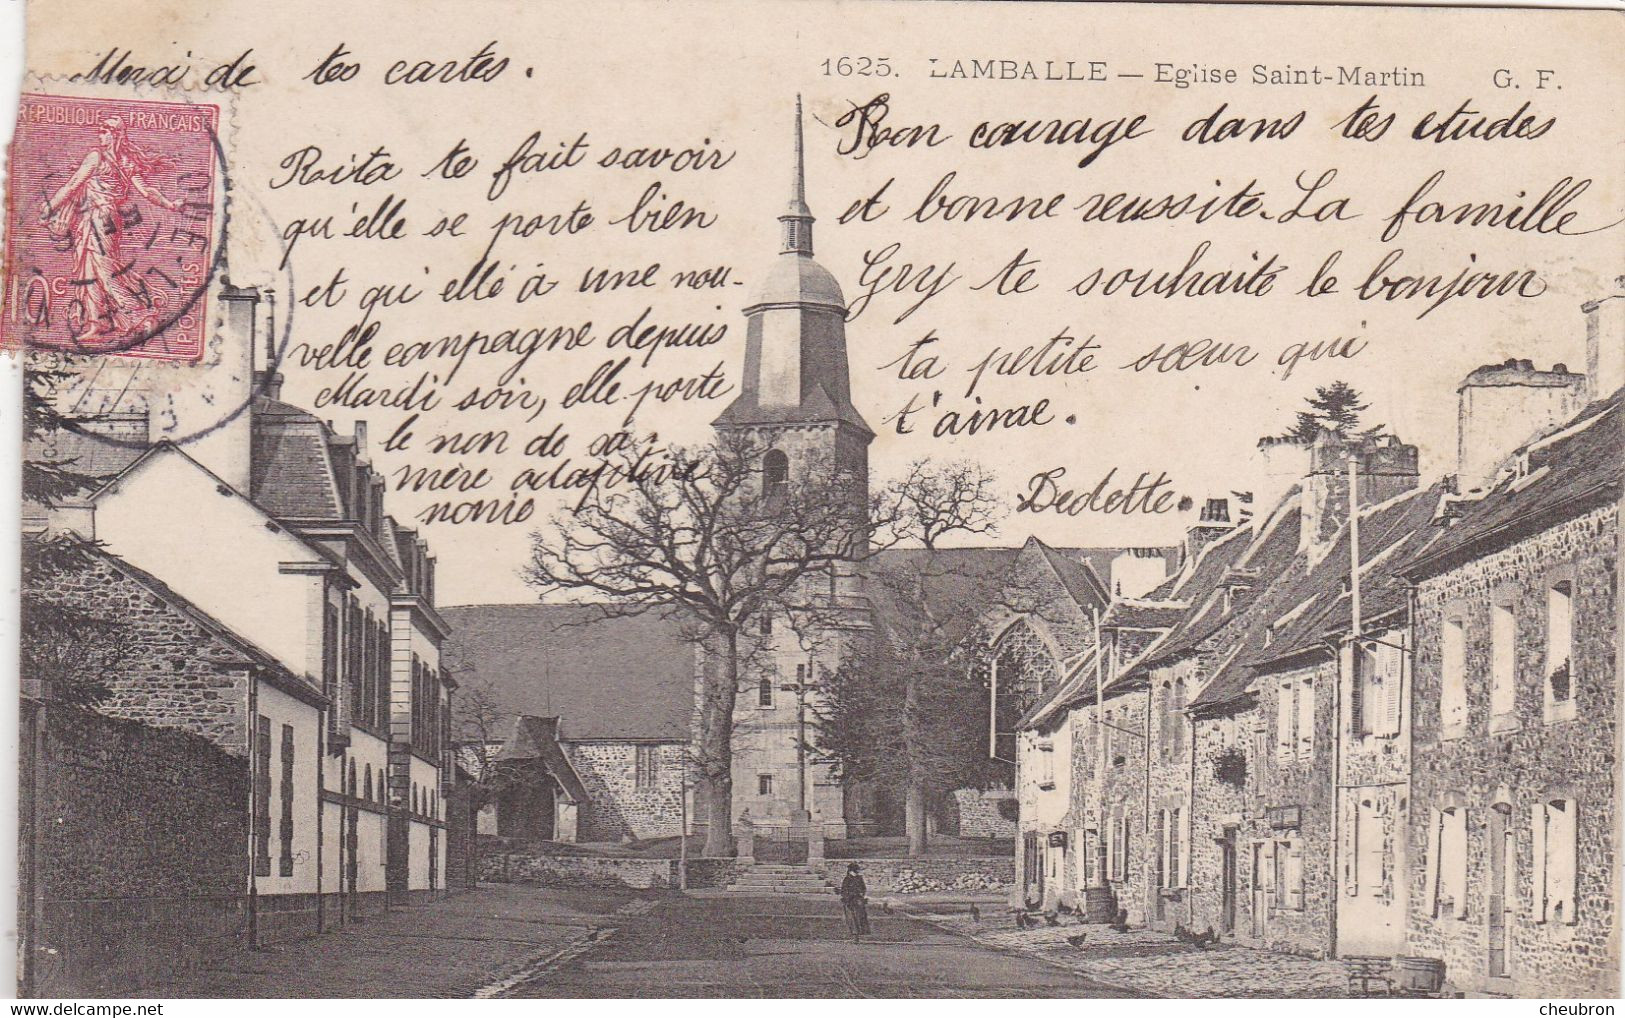 1625. LAMBALLE — Eglise Saint-Martin G. F.
Merci de tes cartes.
REPUBLIQUE FRANÇAISE
10c
POSTES
Rita te fait savoir
qu'elle se porte bien
et qu'elle à une nou-
velle canpagne depuis
Mardi soir, elle porte
le non de sa
mère adaptive
nonie
Bon courage dans tes etudes
et bonne reussite. La famille
Gry te souhaite le bonjour
ta petite sœur qui
t'aime.
Dedette.
cheubron